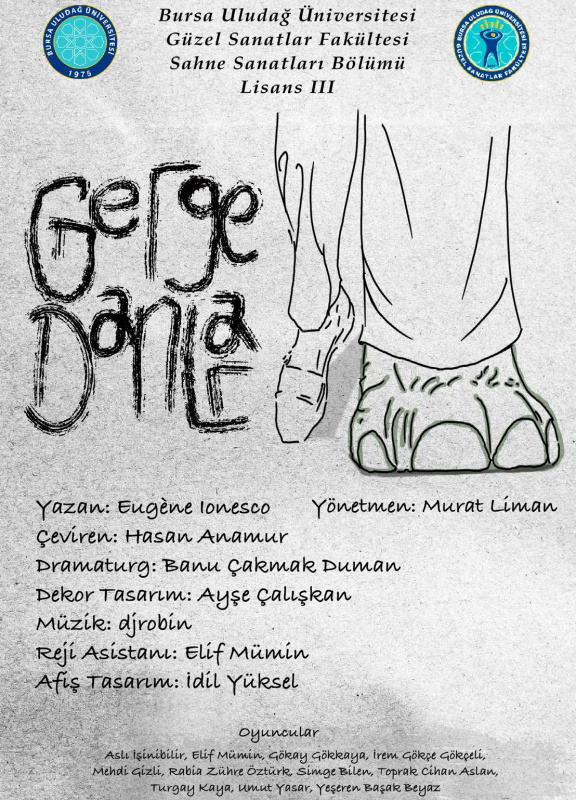 Bursa Uludağ Üniversitesi
Güzel Sanatlar Fakültesi
Sahne Sanatları Bölümü
Lisans III
BURSA ULUDAĞ ÜNİVERSİTESİ
1975
BURSA ULUDAĞ ÜNİVERSİTESİ
GÜZEL SANATLAR FAKÜLTESİ
Gerge
Danlar
Yazan: Eugène Ionesco Yönetmen: Murat Liman
Çeviren: Hasan Anamur
Dramaturg: Banu Çakmak Duman
Dekor Tasarım: Ayşe Çalışkan
Müzik: djrobin
Reji Asistanı: Elif Mümin
Afiş Tasarım: İdil Yüksel
Oyuncular
Aslı İşinibilir, Elif Mümin, Gökay Gökkaya, İrem Gökçe Gökçeli,
Mehdi Gizli, Rabia Zühre Öztürk, Simge Bilen, Toprak Cihan Aslan,
Turgay Kaya, Umut Yasar, Yeşeren Başak Beyaz